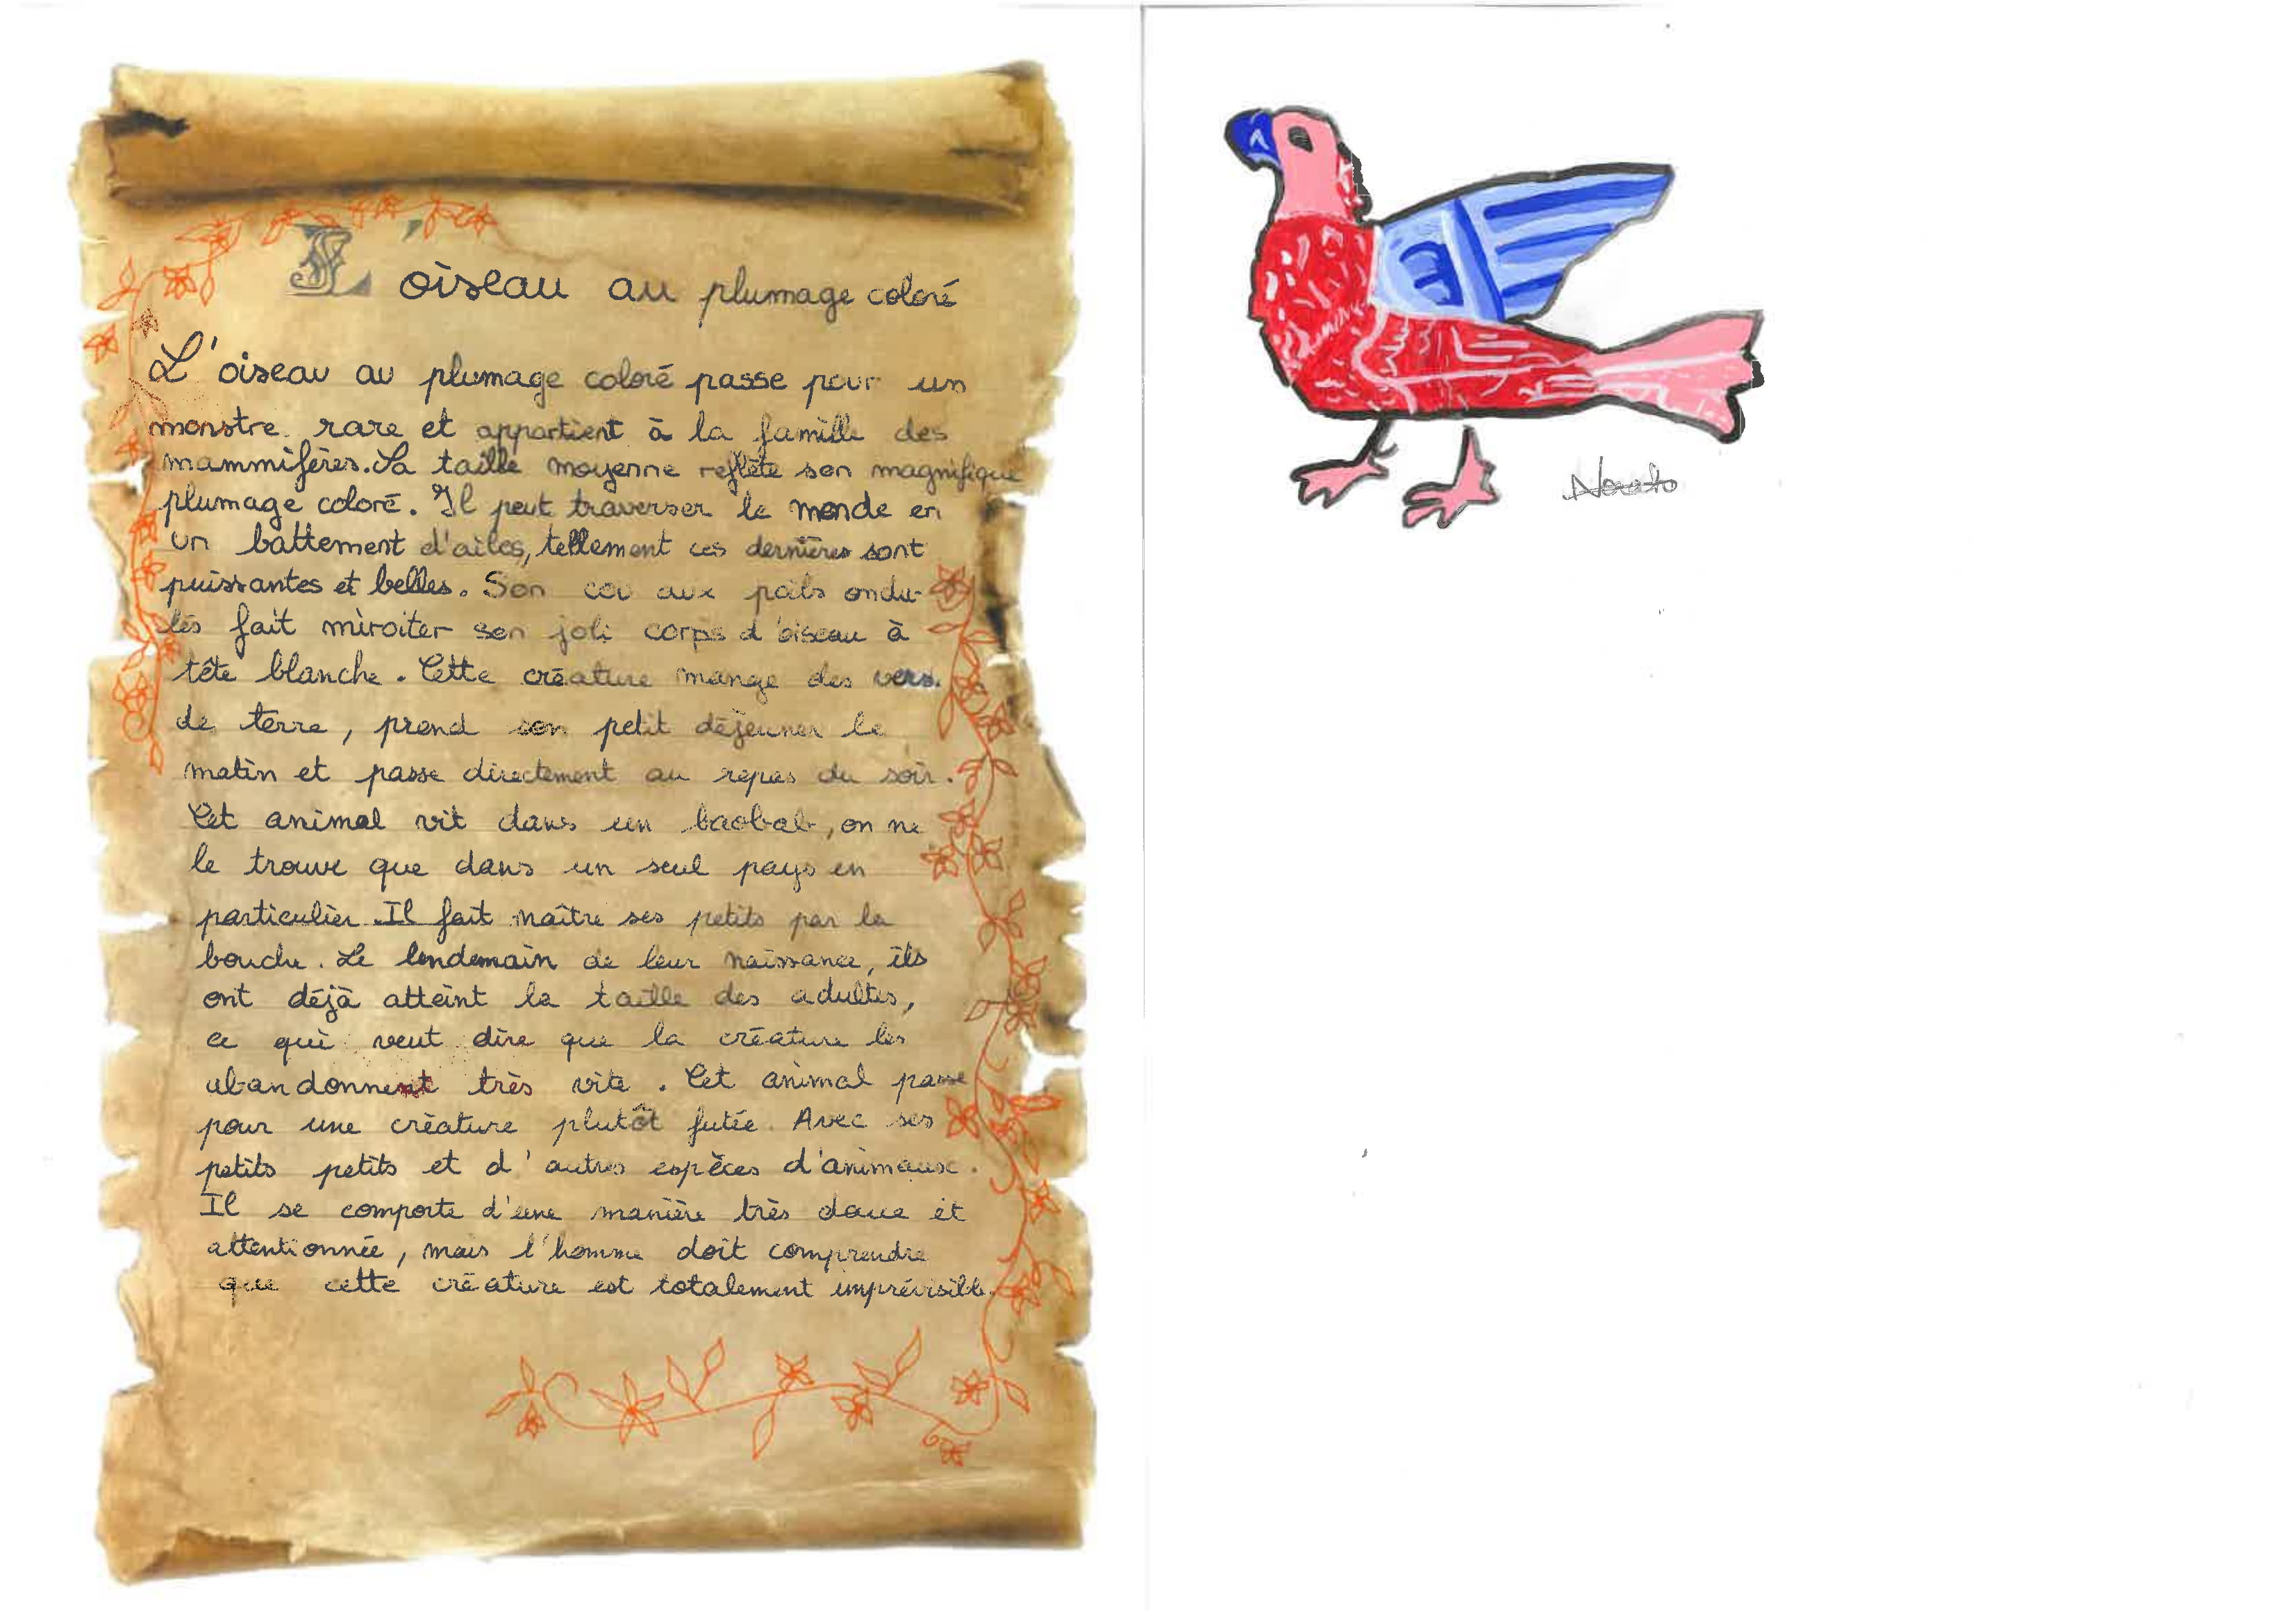 L'oiseau au plumage coloré
L'oiseau au plumage coloré passe pour un
monstre rare et appartient à la famille des
mammifères. Sa taille moyenne reflète son magnifique
plumage coloré. Il peut traverser le monde en
un battement d'ailes, tellement ces dernières sont
puissantes et belles. Son cou aux poils ondu-
lés fait miroiter son joli corps d'oiseau à
tête blanche. Cette créature mange des vers
de terre, prend son petit déjeuner le
matin et passe directement au repas du soir.
Cet animal vit dans un baobab, on ne
le trouve que dans un seul pays en
particulier. Il fait naître ses petits par la
bouche. Le lendemain de leur naissance, ils
ont déjà atteint la taille des adultes,
ce qui veut dire que la créature les
abandonnent très vite. Cet animal passe
pour une créature plutôt futée. Avec ses
petits petits et d'autres espèces d'animaux.
Il se comporte d'une manière très douce et
attentionnée, mais l'homme doit comprendre
que cette créature est totalement imprévisible.